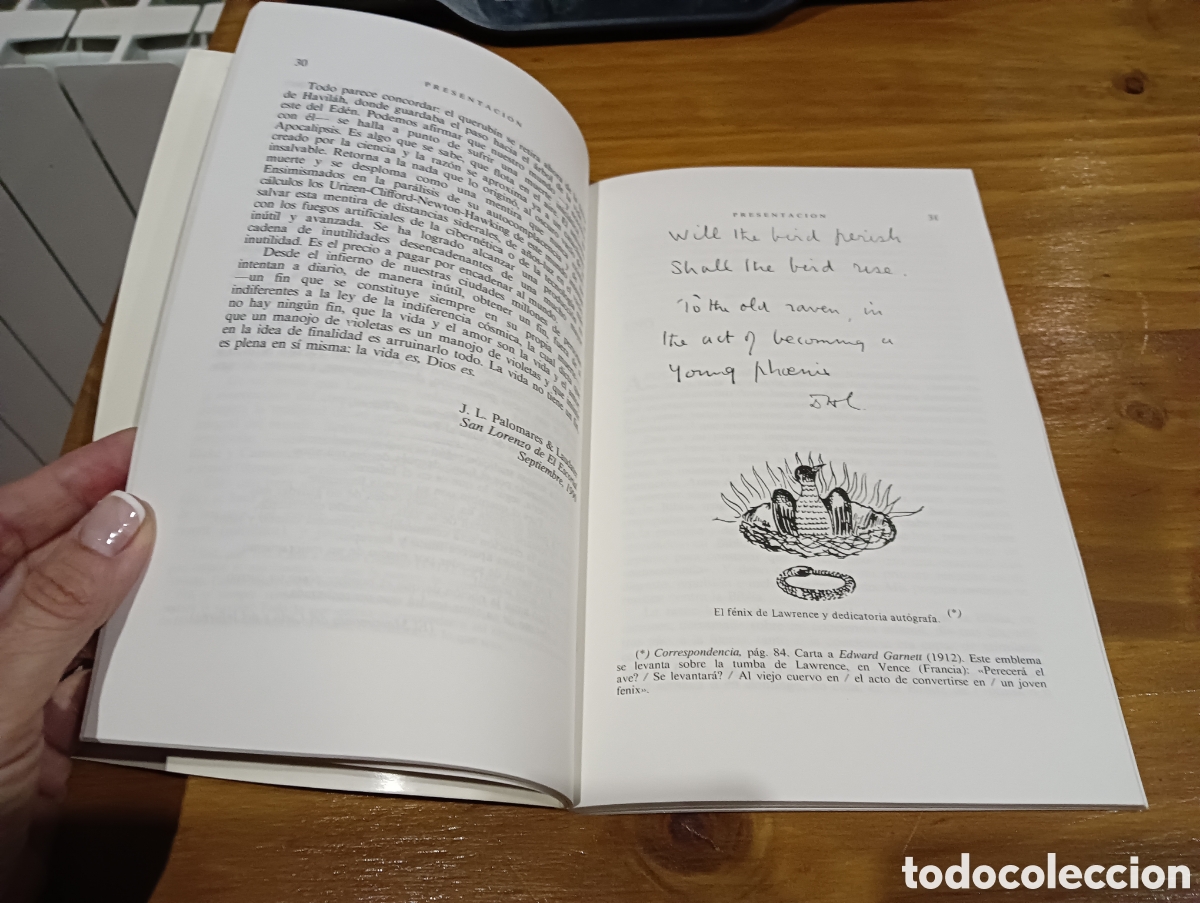 30
PRESENTACIÓN
Todo parece concordar: el querubín se retira
de Haviláh, donde guardaba el paso hacia el árbol de
este del Edén. Podemos afirmar que nuestro
con él— se halla a punto de sufrir una muerte
Apocalipsis. Es algo que se sabe, que flota en el
creado por la ciencia y la razón se aproxima
insalvable. Retorna a la nada que lo originó, al
muerte y se desploma como una mentira que
Ensimismados en la parálisis de su autocomplacencia
cálculos los Urizen-Clifford-Newton-Hawking de este
salvar esta mentira de distancias siderales, de años-luz
con los fuegos artificiales de la cibernética o de la
inútil y avanzada. Se ha logrado alcanzar una
cadena de inutilidades desencadenantes de una
inutilidad. Es el precio a pagar por encadenar al mundo
Desde el infierno de nuestras ciudades millones de
intentan a diario, de manera inútil, obtener un fin,
—un fin que se constituye siempre en su propia
indiferentes a la ley de la indiferencia cósmica, la cual dicta que
no hay ningún fin, que la vida y el amor son la vida y el
que un manojo de violetas es un manojo de violetas y que
en la idea de finalidad es arruinarlo todo. La vida no tiene un fin
es plena en sí misma: la vida es. Dios es.
J. L. Palomares &
San Lorenzo de El Escorial
Septiembre,
PRESENTACIÓN
31
Will the bird perish
Shall the bird rise.
To the old raven, in
the act of becoming a
young phoenix
DHL.
El fénix de Lawrence y dedicatoria autógrafa. (*)
(*) Correspondencia, pág. 84. Carta a Edward Garnett (1912). Este emblema
se levanta sobre la tumba de Lawrence, en Vence (Francia): «Perecerá el
ave? / Se levantará? / Al viejo cuervo en / el acto de convertirse en / un joven
fenix».
todocoleccion